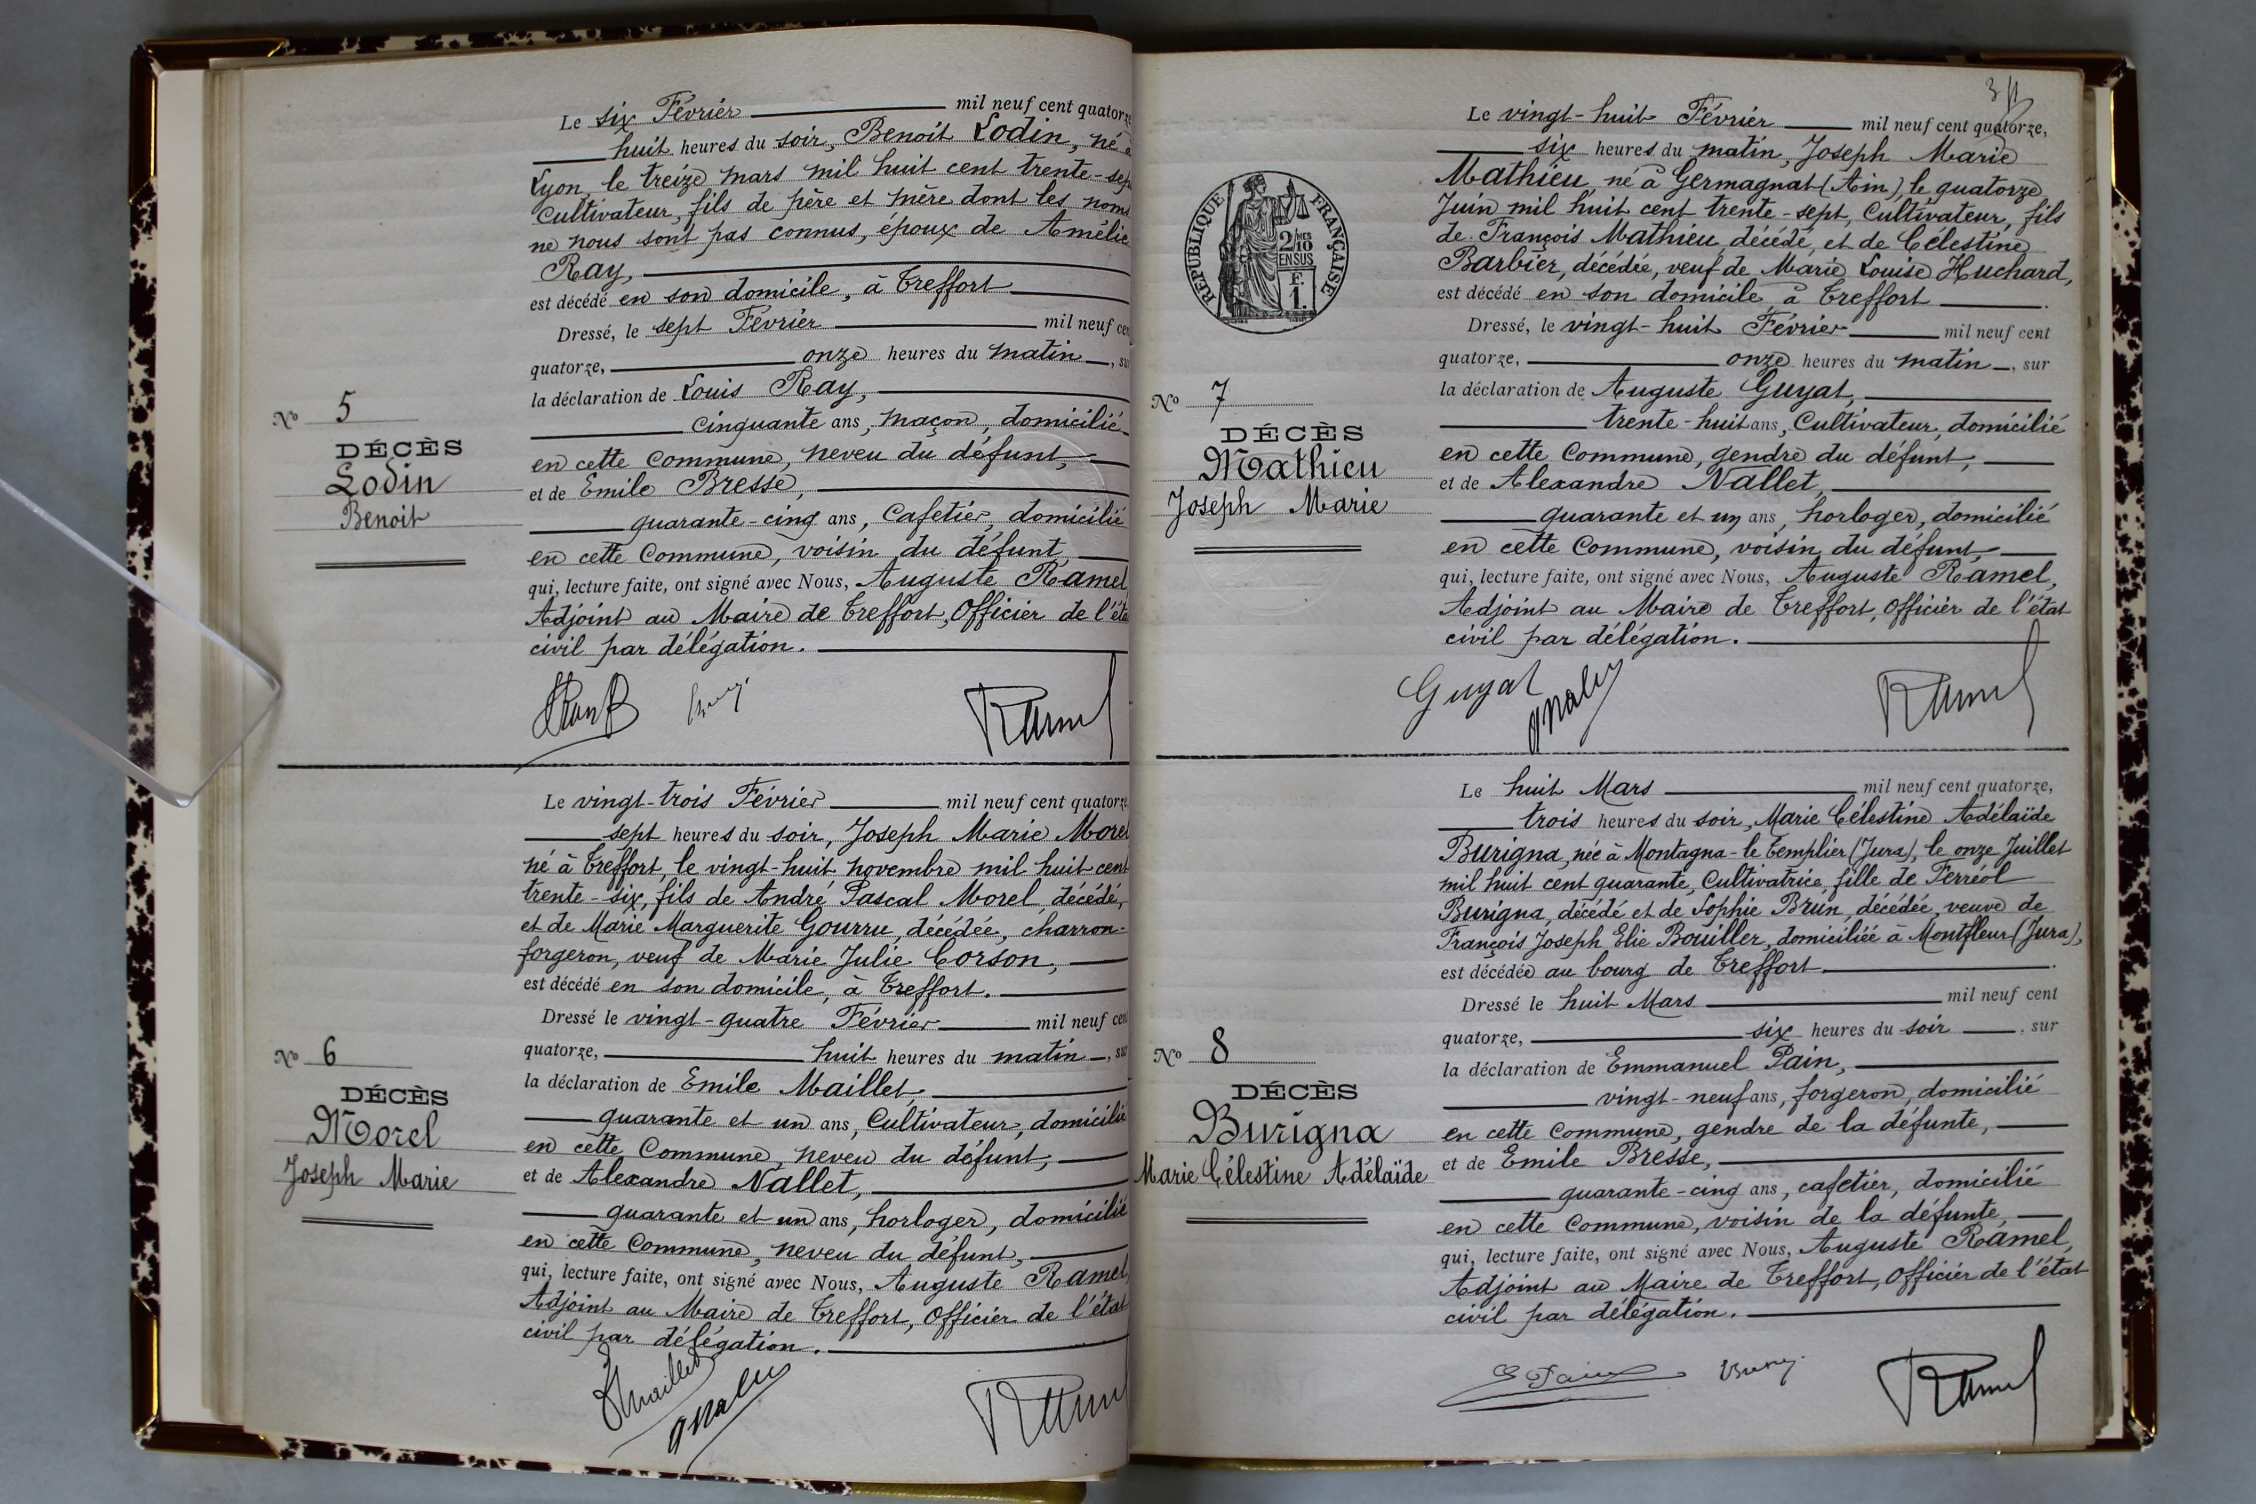 Le six Février mil neuf cent quatorze
huit heures du soir, Benoit Lodin, né à
Lyon, le treize mars mil huit cent trente-sept
Cultivateur, fils de père et mère dont les noms
ne nous sont pas connus, époux de Amélie
Ray,
est décédé en son domicile, à Treffort
Dressé, le sept Février mil neuf cent
quatorze, onze heures du matin, sur
la déclaration de Louis Ray,
cinquante ans, maçon, domicilié
en cette Commune, neveu du défunt,
et de Emile Bresse,
quarante-cinq ans, Cafetier, domicilié
en cette Commune, voisin du défunt,
qui, lecture faite, ont signé avec Nous, Auguste Ramel
Adjoint au Maire de Treffort, Officier de l'état
civil par délégation.
Ramel
No 5
DÉCÈS
Lodin
Benoit
Le vingt-trois Février mil neuf cent quatorze
sept heures du soir, Joseph Marie Morel
né à Treffort, le vingt-huit novembre mil huit cent
trente-six, fils de André Pascal Morel, décédé,
et de Marie Marguerite Gourru, décédée, charron-
forgeron, veuf de Marie Julie Corson,
est décédé en son domicile, à Treffort.
Dressé le vingt-quatre Février mil neuf cent
quatorze, huit heures du matin, sur
la déclaration de Emile Maillet,
quarante et un ans, Cultivateur, domicilié
en cette Commune, neveu du défunt,
et de Alexandre Nallet,
quarante et un ans, horloger, domicilié
en cette Commune, neveu du défunt,
qui, lecture faite, ont signé avec Nous, Auguste Ramel
Adjoint au Maire de Treffort, Officier de l'état
civil par délégation.
Maillet
Ramel
No 6
DÉCÈS
Morel
Joseph Marie
Le vingt-huit Février mil neuf cent quatorze,
six heures du matin, Joseph Marie
Mathieu, né à Germagnat (Ain), le quatorze
Juin mil huit cent trente-sept, Cultivateur, fils
de François Mathieu, décédé, et de Célestine
Barbier, décédée, veuf de Marie Louise Huchard,
est décédé en son domicile à Treffort
Dressé, le vingt-huit Février mil neuf cent
quatorze, onze heures du matin, sur
la déclaration de Auguste Guyat,
trente-huit ans, Cultivateur, domicilié
en cette Commune, gendre du défunt,
et de Alexandre Nallet,
quarante et un ans, horloger, domicilié
en cette Commune, voisin du défunt,
qui, lecture faite, ont signé avec Nous, Auguste Ramel,
Adjoint au Maire de Treffort, Officier de l'état
civil par délégation.
Guyat
Ramel
RÉPUBLIQUE FRANÇAISE
2/10
EN SUS
F.
1.
No 7
DÉCÈS
Mathieu
Joseph Marie
Le huit Mars mil neuf cent quatorze,
trois heures du soir, Marie Célestine Adélaïde
Burigna, née à Montagna-le Templier (Jura), le onze Juillet
mil huit cent quarante, Cultivatrice, fille de Ferréol
Burigna, décédé et de Sophie Brun, décédée, veuve de
François Joseph Elie Bouiller, domiciliée à Montfleur (Jura),
est décédée au bourg de Treffort
Dressé le huit Mars mil neuf cent
quatorze, six heures du soir, sur
la déclaration de Emmanuel Pain,
vingt-neuf ans, forgeron, domicilié
en cette Commune, gendre de la défunte,
et de Emile Bresse,
quarante-cinq ans, cafetier, domicilié
en cette Commune, voisin de la défunte,
qui, lecture faite, ont signé avec Nous, Auguste Ramel,
Adjoint au Maire de Treffort, Officier de l'état
civil par délégation.
E Pain
Ramel
No 8
DÉCÈS
Burigna
Marie Célestine Adélaïde